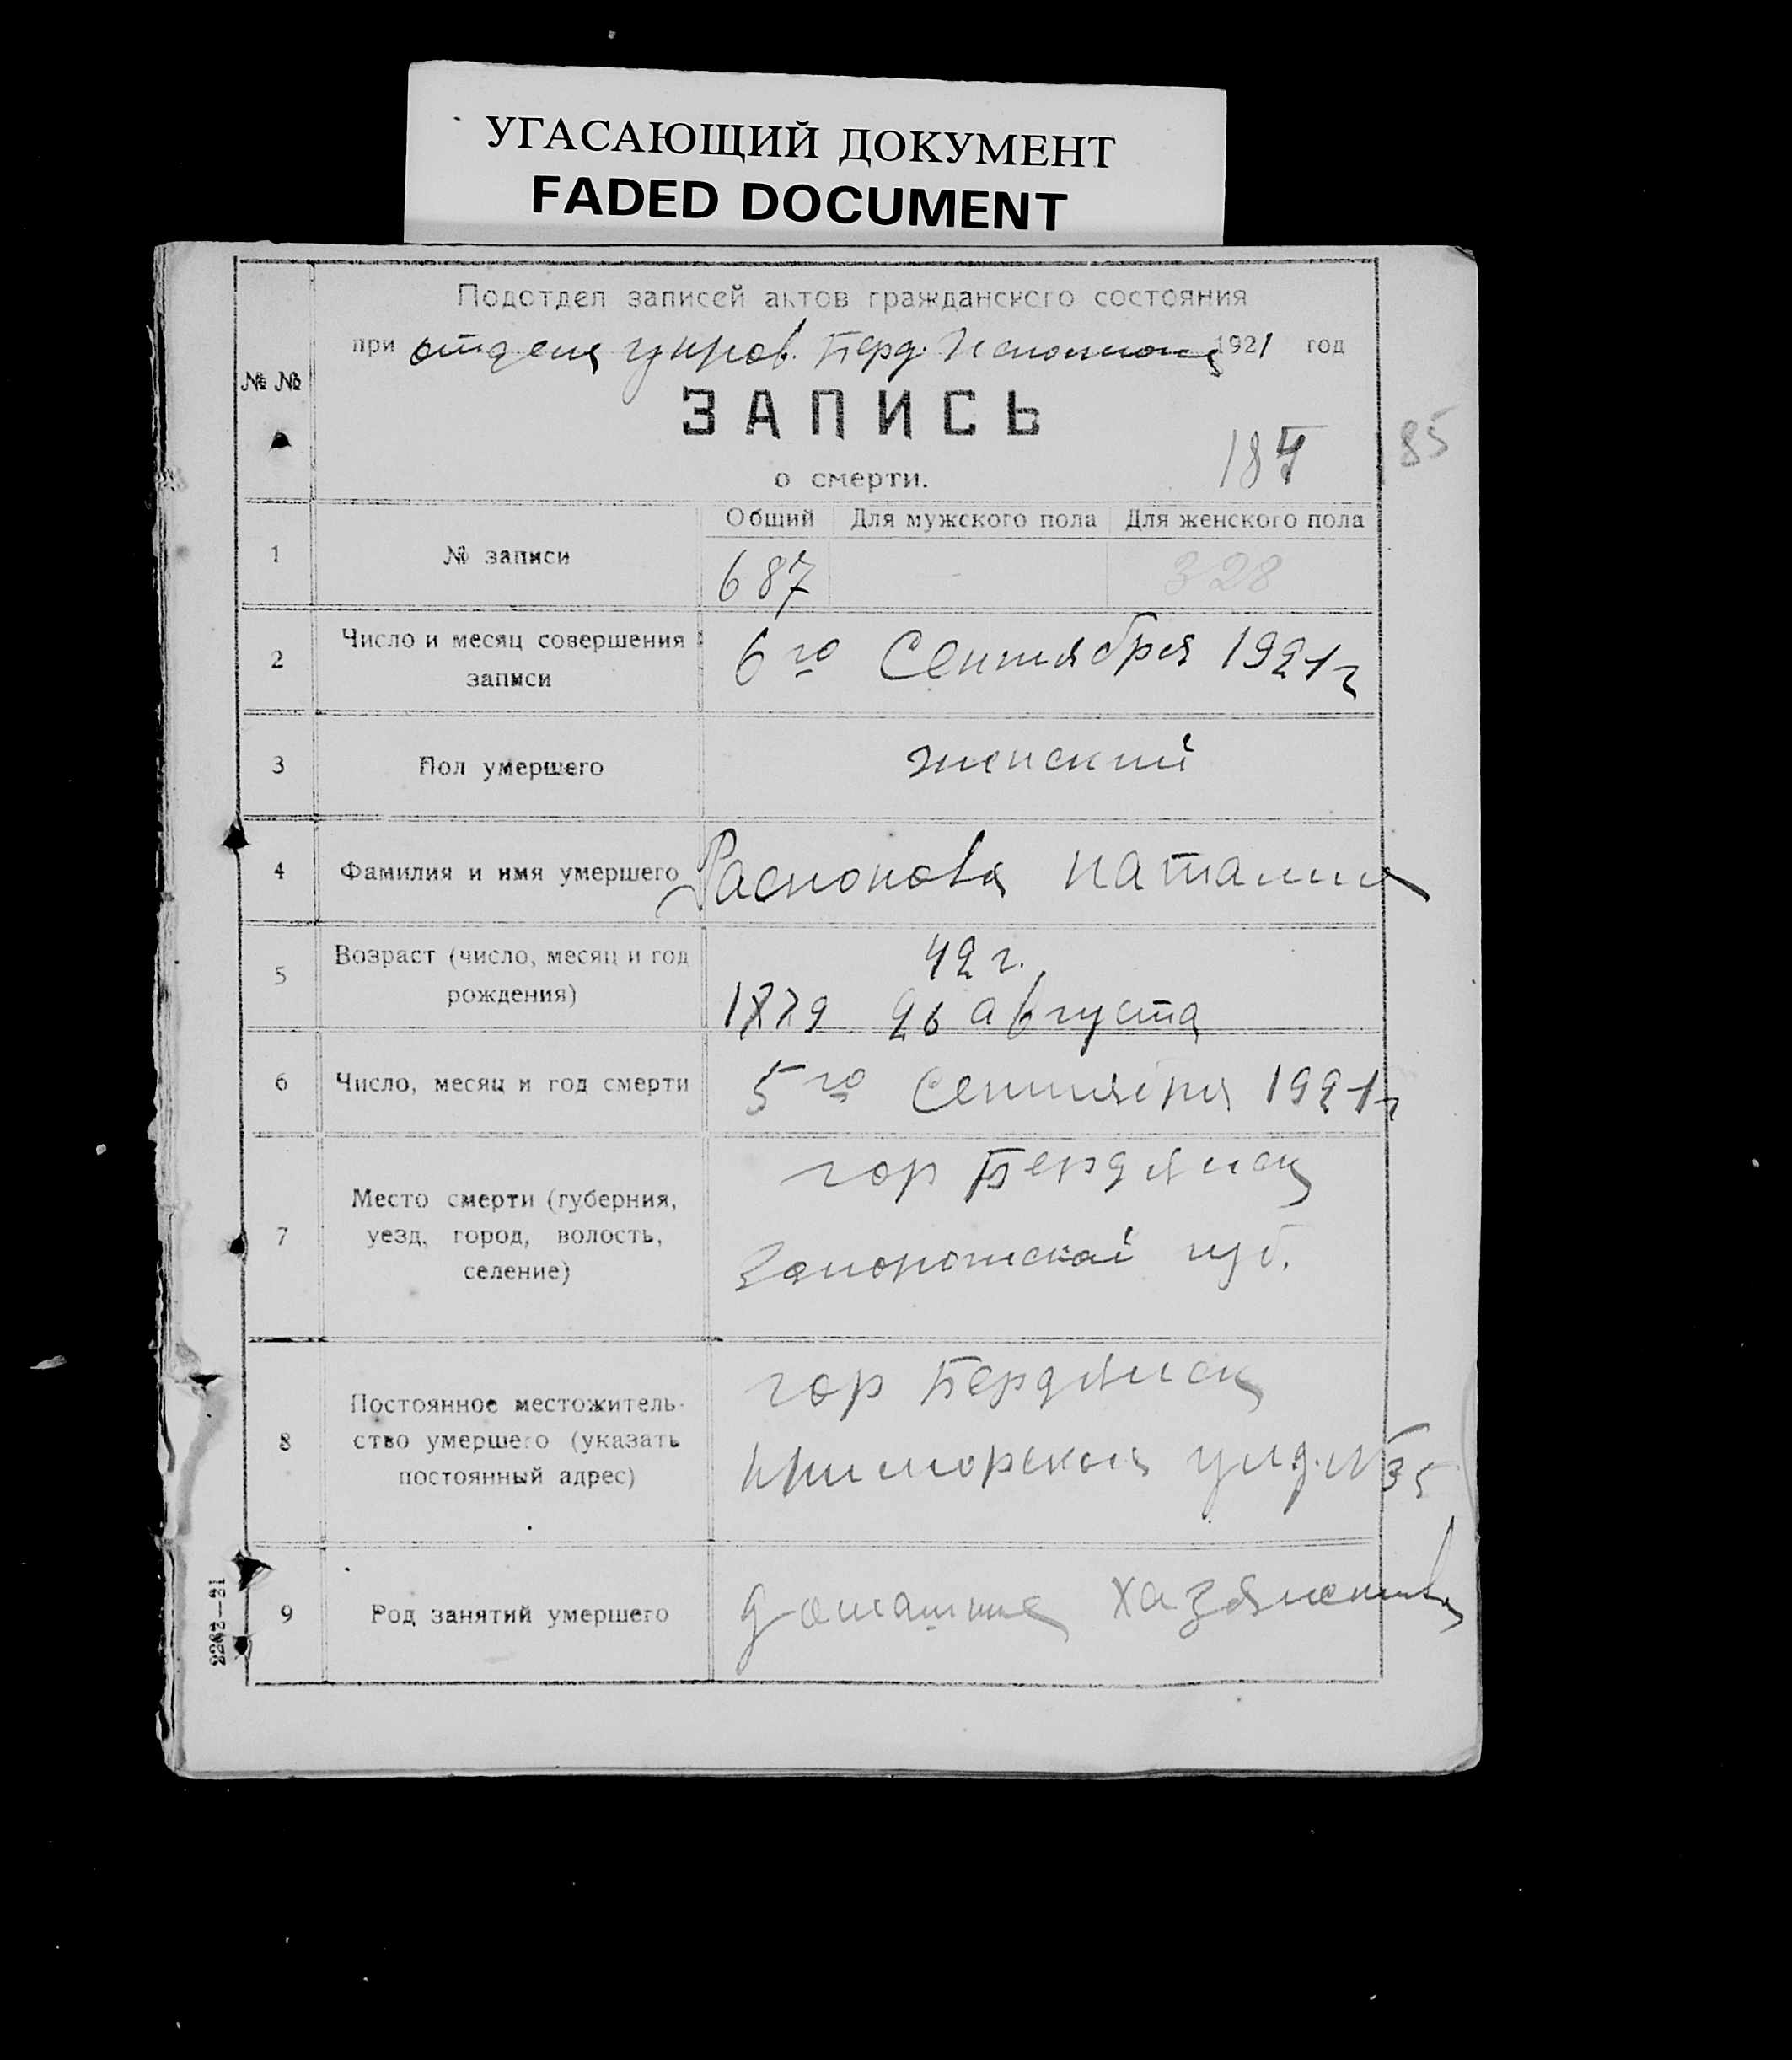 УГАСАЮЩИЙ ДОКУМЕНТ
FADED DOCUMENT
Подотдел записей актов гражданского состояния
при отдела управ. Берд. Исполкома 1921 год
№ №
ЗАПИСЬ
о смерти.
187
85
Общий Для мужского пола Для женского пола
1 № записи 687 — 328
2 Число и месяц совершения записи 6го Сентября 1921 г
3 Пол умершего женский
4 Фамилия и имя умершего Распопова Наталия
5 Возраст (число, месяц и год рождения) 42 г.
1879 26 августа
6 Число, месяц и год смерти 5го Сентября 1921 г
7 Место смерти (губерния, уезд, город, волость, селение) гор Бердянск
Запорожской губ.
8 Постоянное местожительство умершего (указать постоянный адрес) гор Бердянск
Приморская ул д. № 35
9 Род занятий умершего домашнее хазяйства
2262—21